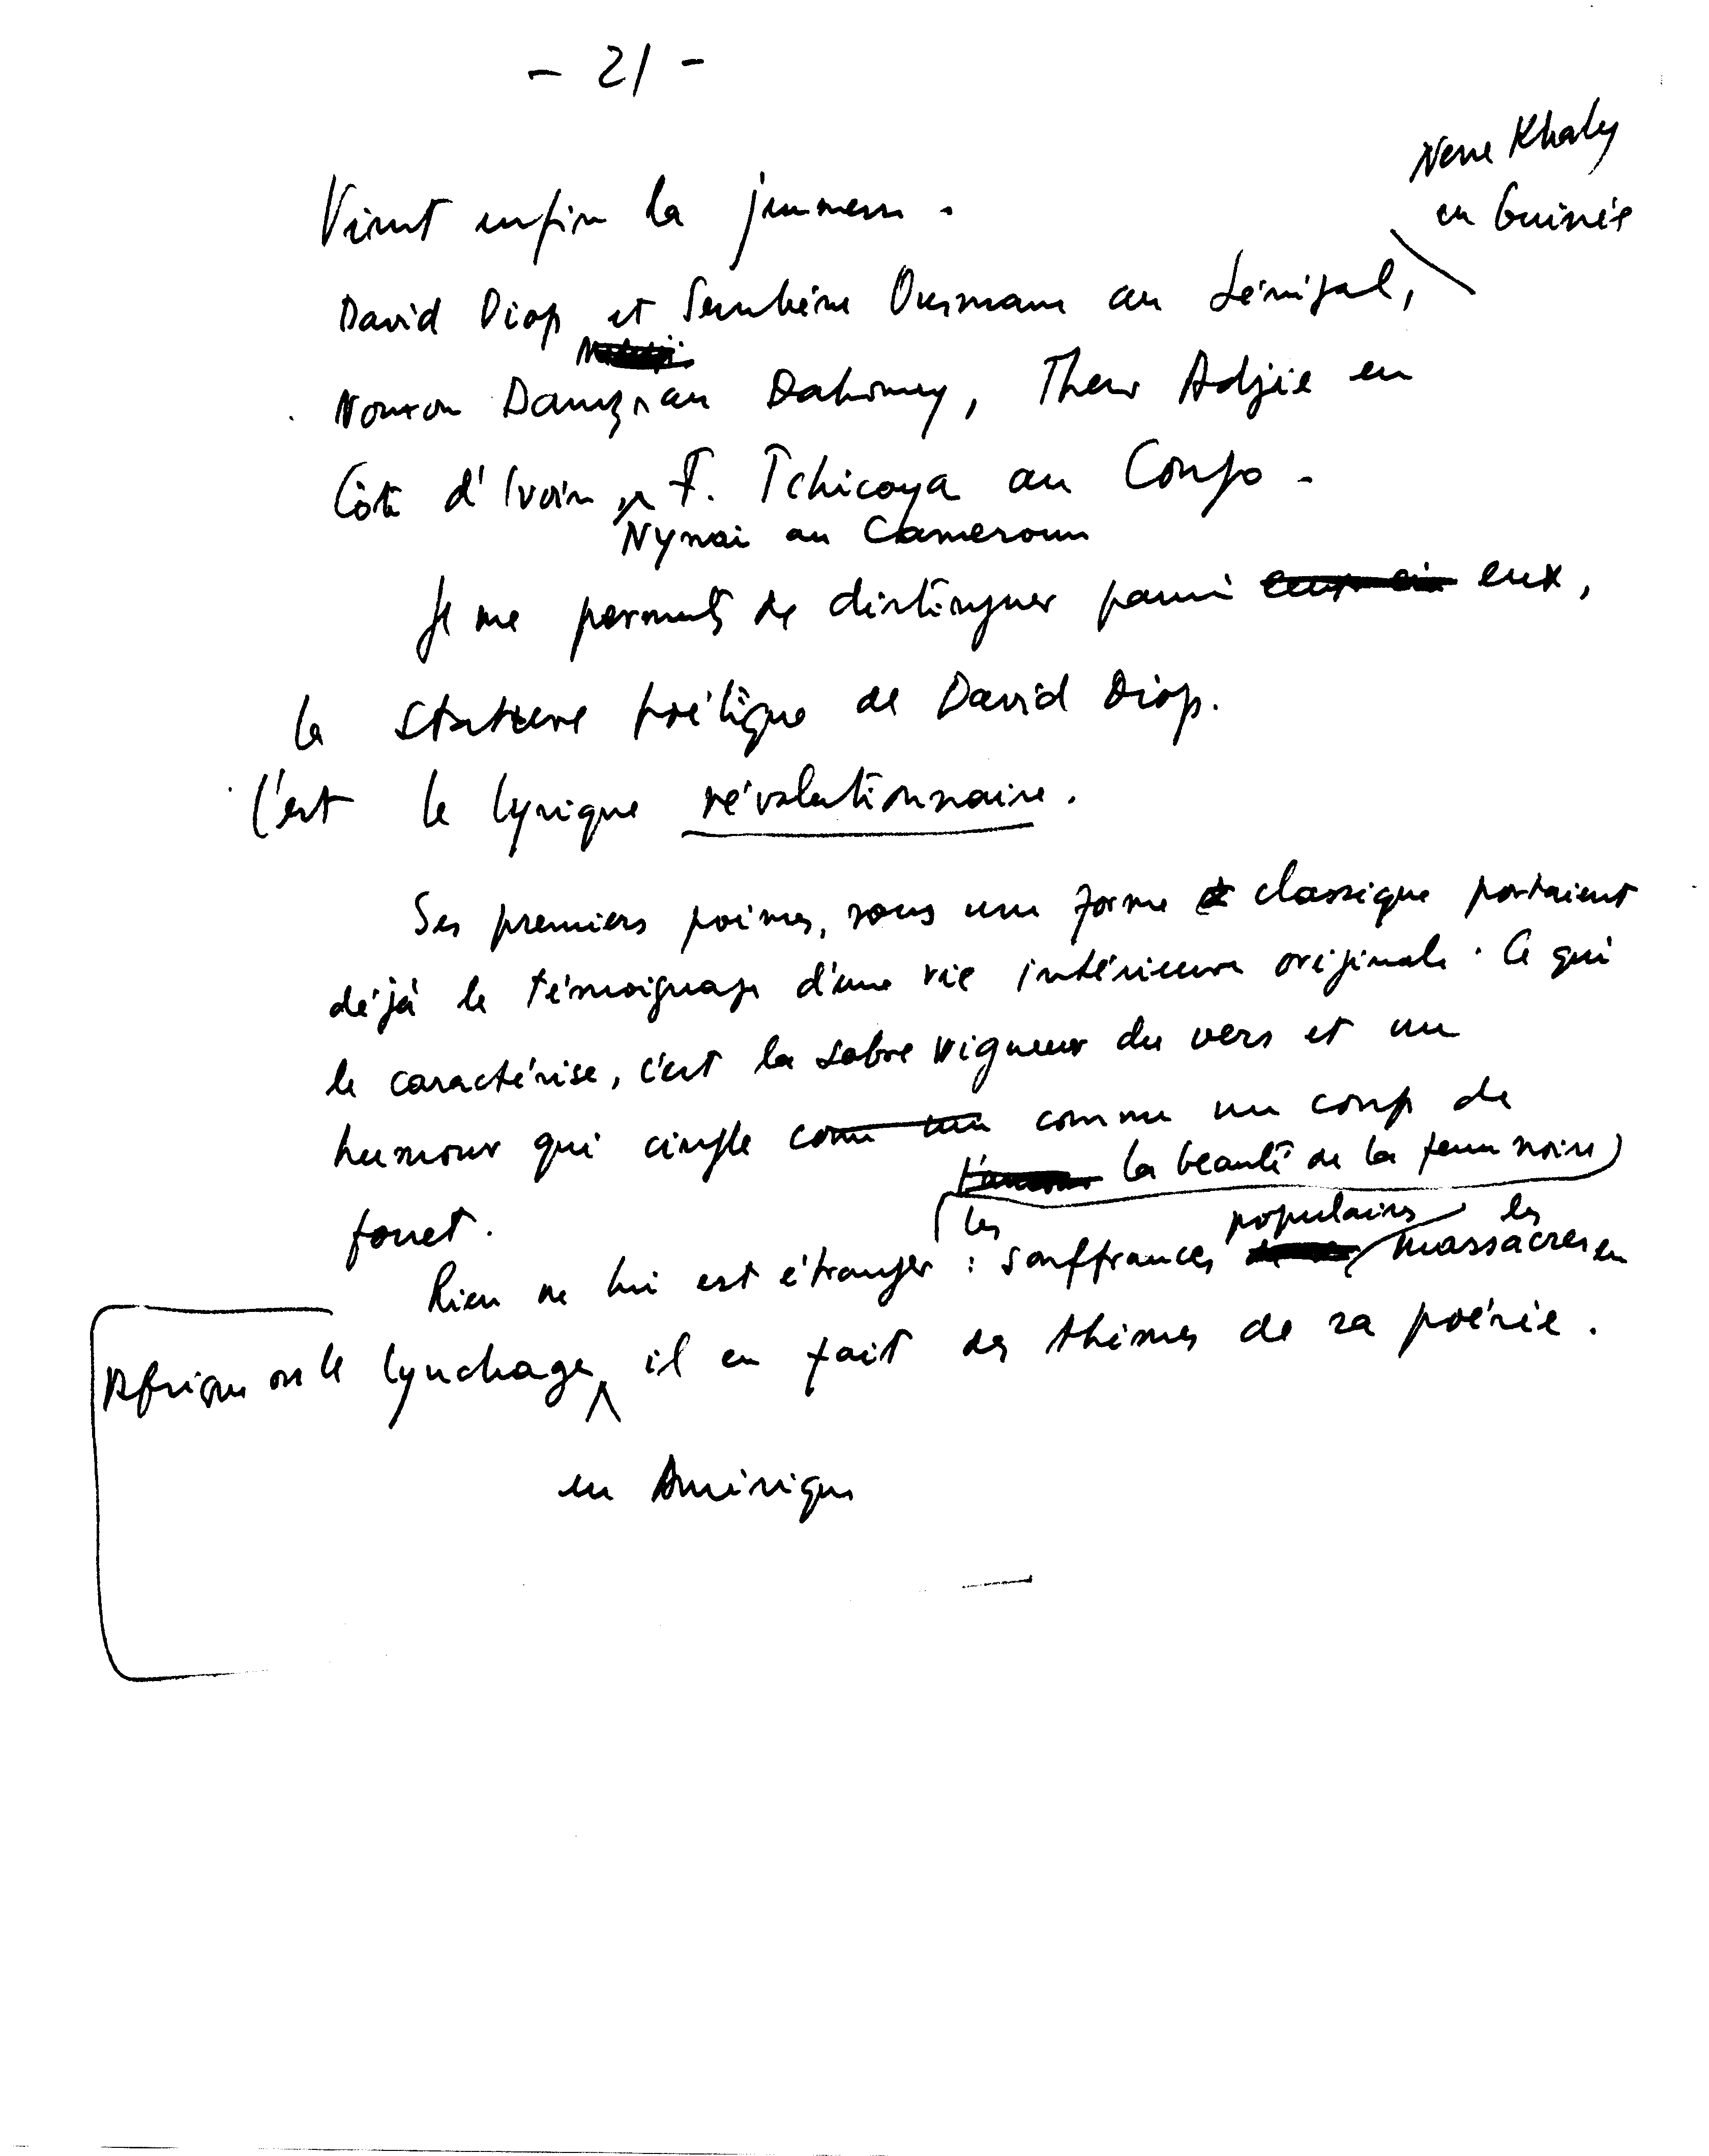 - 21 -
Nene Khaly
en Guinée
Vient enfin la jeunesse.
David Diop et Sembène Ousmane au Sénégal,
au Dahomey, Adjie en
Côte d'Ivoire, F. Tchicaya au Congo.
au Cameroun
Je me permets de distinguer parmi ceux-ci eux,
la stature poétique de David Diop.
C'est le lyrique révolutionnaire.
Ses premiers poèmes, sous une forme classique portaient
déjà le témoignage d'une vie intérieure originale. Ce qui
le caractérise, c'est la sobre vigueur du vers et un
humour qui cingle comme un coup de
la beauté de la femme noire
fouet.
les populaires les
Rien ne lui est étranger : souffrances massacres en
Afrique ou le lynchage il en fait des thèmes de sa poésie.
en Amérique